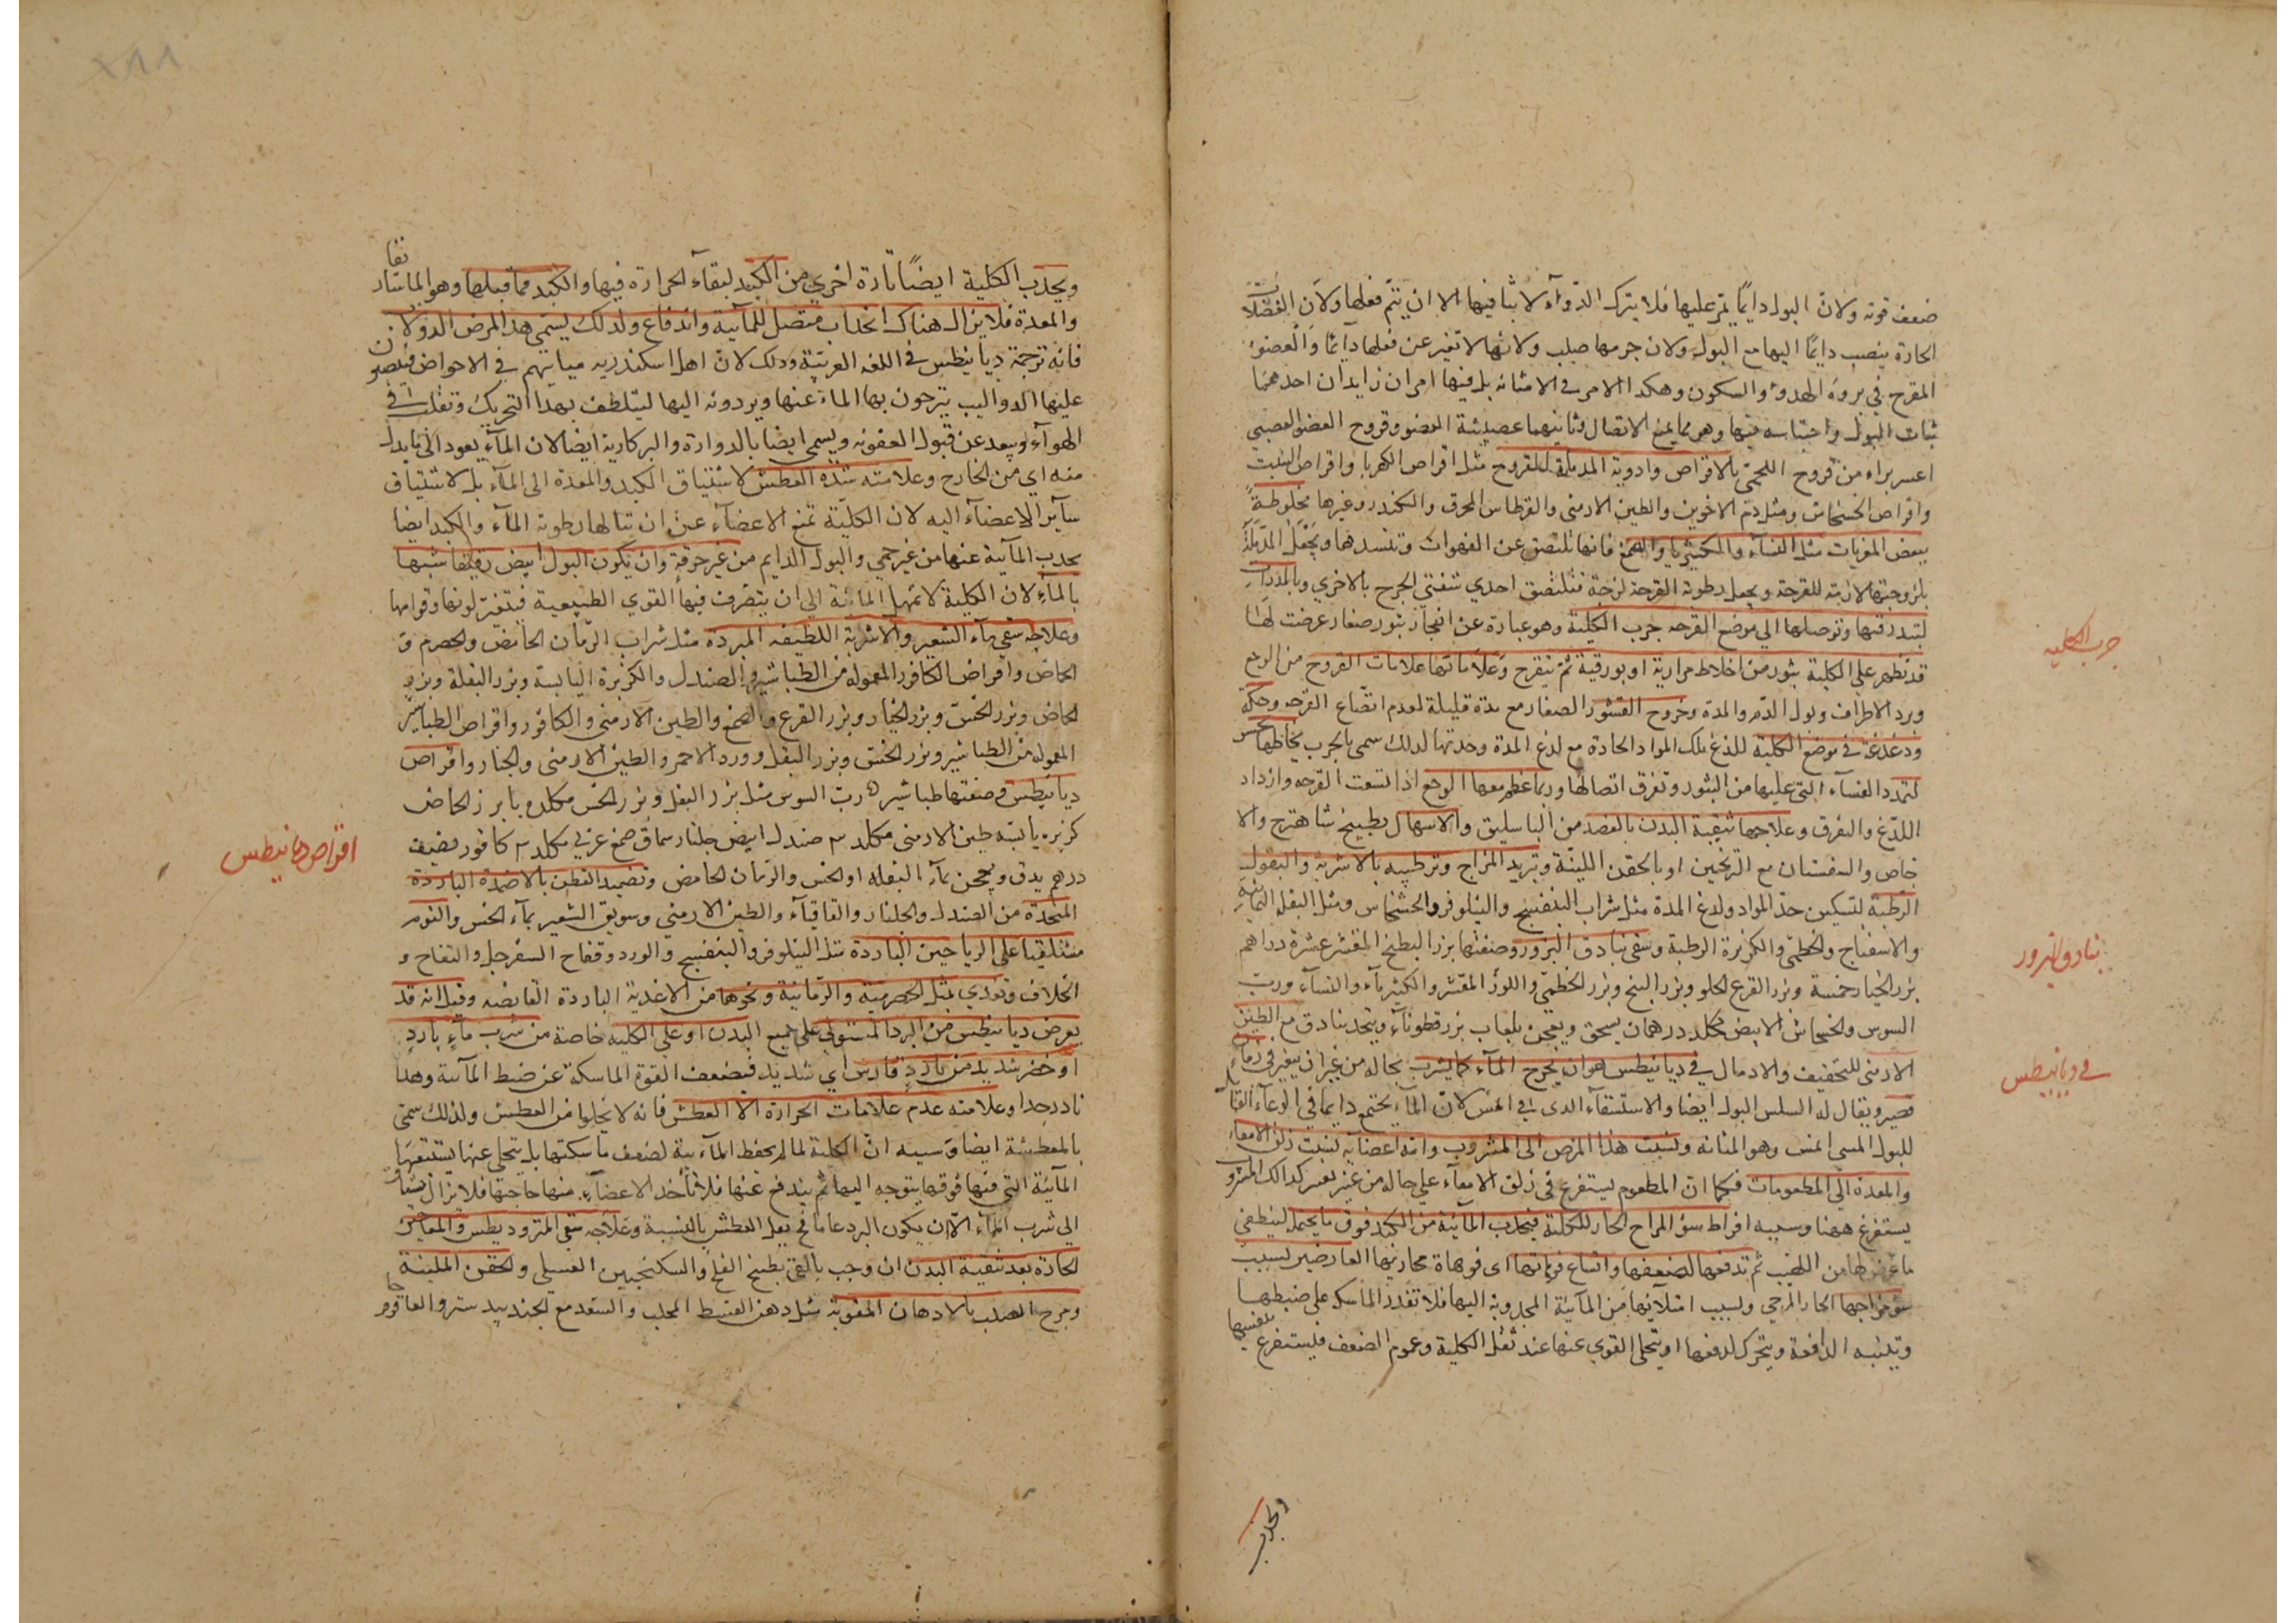 ضعف قوته ولان البول دايمًا يمر عليها فلا يترك الدوآء لابثا فيها الا ان يتم فعلها ولان الفضلات
الحارة ينصب دايمًا اليها مع البول ولان جرمها صلب ولانها لا تفتر عن فعلها دآيمًا والعضو
المقرح في بروه الهدوء والسكون وهكدا الامر في الامثانه بل فيها امران زايدان احدهما
ثبات البول واحتباسه فيها وهو مما يمنع الاتصال وثانيهما عصبية العضو وقروح العضو العصبي
اعسر براء من قروح اللحمي بالاقراص وادوية المدملة للقروح مثل اقراص الكهربا واقراص
واقراص الخشخاش ومثل دم الاخوين والطين الارمني والقرطاس المحرق والكندر وغيرها مخلوطة
ببعض المغريات مثل النسآء والكثيرا والصمغ فانها تلتصق عن الفهوات وتسدها ويجعل المدملة
بلزوجتها لازبة للقرحة ويجعل رطوبة القرحة لزجة فتلتصق احدي شفتى الجرح بالاخري وبالمدرات
لتبدرقتها وتوصلها الي موضع القرحه جرب الكلية وهو عبارة عن انفجار بثور صغار عرضت لها
قد تظهر على الكلية بثور من اخلاط مرارية او بورقية ثم يتقرح وعلاماتها علامات القروح من الوجع
وبرد الاطراف وبول الدم والمدة وخروج القشور الصغار مع مدة قليلة لعدم اتساع القرحه وحكة
ودغدغة في موضع الكلية للذع تلك المواد الحادة مع لدع المدة وحدتها لدلك سمى بالجرب
لتمدد الغسآء التي عليها من البثور وتفرق اتصالها وربما عظم معها الوجع اذا اتسعت القرحه وازداد
اللدغ والتفرق وعلاجها تنقية البدن بالفصد من الباسليق والاسهال بطبيخ شاهترج والا
جاص والسفستان مع الترنجبين او بالحقن اللينة وتبريد المزاج وترطيبه بالاشربة والبقول
الرطبة لتسكين حد المواد ولدغ المدة مثل شراب البنفسج والنيلوفر والخشخاش ومثل البقلة اليمانية
والاسفناج والخطمي والكزبرة الرطبة وسقي بنادق البزور وصفتها بزر البطيخ المقشر عشرة دراهم
بزر الخيار خمسة وبزر القرع الحلو وبزر البنج وبزر الخطمي واللوز المقشر والكثيرآء والنسآء ورب
السوس والخشخاش الابيض مكلد درهمان يسحق ويعجن بلعاب بزر قطونآء ويتخد بنادق مع الطين
الارمني للتخفيف والادمال في ديانيطس هو ان يخرج المآء كما يشرب بحاله من غير ان يتغير في زمان
قصير ويقال له السلس البول ايضا والاستسقآء الدى في لان المآء يجتمع دايما في الوعآء
للبول وهو المثانه ونسبت هذا المرض الى المشروب والى اعضآيه نسبت زلق الامعاء
والمعدة الى المطعومات فكما ان المطعوم ليستفرغ في زلق الامعآء علي حاله من غير تغير كدالك المشروب
يستفرغ ههنا وسببه افراط سؤ المزاج الحار للكلية فيجذب المآئية من الكبد فوق ما يحتمل لينطفي
ما عرض لها من اللهب ثم تدفعها لضعفها واتساع فوهاتها اى فوهاة مجاريها العارضين لسبب
سؤ مزاجها الحار المرخي ولسبب امتلآئها من المآئية المجذوبة اليها فلا تقدر الماسكه على ضبطها
وتلتبه الدافعة ويتحرك لدفعها او يتخلى القوي عنها عند ثقل الكلية وعموم الضعف فيستفرغ بنفسها
ويجذب
جرب الكليه
بنادق البزور
في ديانيطس
ويجذب الكلية ايضًا تارة اخري من الكبد لبقآء الحرارة فيها والكبد مما قبلها وهو الماساريقا
والمعدة فلا يزال هناك انجداب متصل للمآئية واندفاع ولدلك يسمى هدا المرض الدولاب
فانه ترجمة ديانيطس في اللغه العربية ودلك لان اهل اسكندريه مياتهم في الاحواض فينصبون
عليها الدواليب ينزحون بها المآء عنها ويردونه اليها ليتلطف بهدا التحريك وتقلب في
الهوآء ويبعد عن قبول العفونه ويسمى ايضا بالدوارة والبركارية ايضا لان المآء يعود الى ما بدا
منه اي من الخارج وعلامته شدة العطش لاشتياق الكبد والمعدة الى المآء بل لاشتياق
سآير الاعضآء اليه لان الكلية تمنع الاعضآء عن ان تنالها رطوبة المآء والكبد ايضا
يجدب المآئية عنها من غير حمي والبول الدايم من غير حرقة وان يكون البول ابيض رقيقا شبيها
بالمآء لان الكلية لا تمهل المآئية الى ان يتصرف فيها القوي الطبيعية فيتغير لونها وقوامها
وعلاجه سقي مآء الشعير والاشربة اللطيفه المبردة مثل شراب الرمان الحامض والحصرم و
الحماض واقراص الكافور المعموله من الطباشير والصندل والكزبرة اليابسة وبزر البقلة وبزر
الحماض وبزر الخس وبزر الخيار وبزر القرع والصمغ والطين الارمني والكافور واقراص الطباشير
المعموله من الطباشير وبزر الخس وبزر البقل وورد الاحمر والطين الارمني والجلنار واقراص
ديانيطس وصنعتها طباشير رب السوس مثل بزر البقل وبزر الخس مكلد بزر الحماض
كزبره يابسه طين الارمني مكلد صندل ابيض جلنار سماق صمغ عربي مكلد كافور نصف
درهم يدق ويعجن بمآء البقله او الخس والرمان الحامض وتضميد القطن بالاضمدة الباردة
المتخدة من الصندل والجلنار والقاقيآء والطين الارمني وسويق الشعير بمآء الخس والنوم
مستلقيا على الرياحين الباردة مثل النيلوفر والبنفسج والورد وفقاح السفرجل والتفاح و
الخلاف وتغدي بمثل الحصرمية والرمانية ونحوها من الاغدية الباردة القابضه وقيل انه قد
يعرض ديانيطس من البرد المستولي علي جميع البدن او علي الكليه خاصة من شرب مآء بارد
او حصر شديد من بارد قارس اي شديد فيضعف القوة الماسكة عن ضبط المآئية وهدا
نادر جدا وعلامته عدم علامات الحرارة الا العطش فانه لا يخلوا من العطش ولذلك سمى
بالمعطشة ايضا وسببه ان الكلية لما لم يحفظ المآئية لضعف ماسكتها بل يتخلى عنها يستتبعها
المآئية التي فيها فوقها يتوجه اليها ثم يندفع عنها فلا تأخد الاعضآء منها حاجتها فلا تزال
الى شرب المآء الا ان يكون البرد عاما فح يقل العطش بالنسبة وعلاجه سقى المثروديطس والمعاجين
الحارة بعد تنقية البدن ان وجب بالقئ بطبيخ الفجل والسكنجبين العسيلى والحقن الملينة
ومرخ الصلب بالادهان المقوية مثل دهن القسط المحلب والسعد مع الجندبيدستر والعاقرقرحا
اقراص ديانيطس